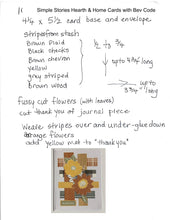 Simple Stories Hearth & Home Cards with Bev Code
4¼ x 5½ card base and envelope
stripes from stash
Brown Plaid
Black checks
Brown chevron
yellow
gray striped
Brown wood
½ - ¾
up to 4¾" long
up to 3¾" long
Fussy cut flowers (with leaves)
cut thank you of journal piece
Weave stripes over and under - glue down
arrange flowers
add yellow mat to "thank you"